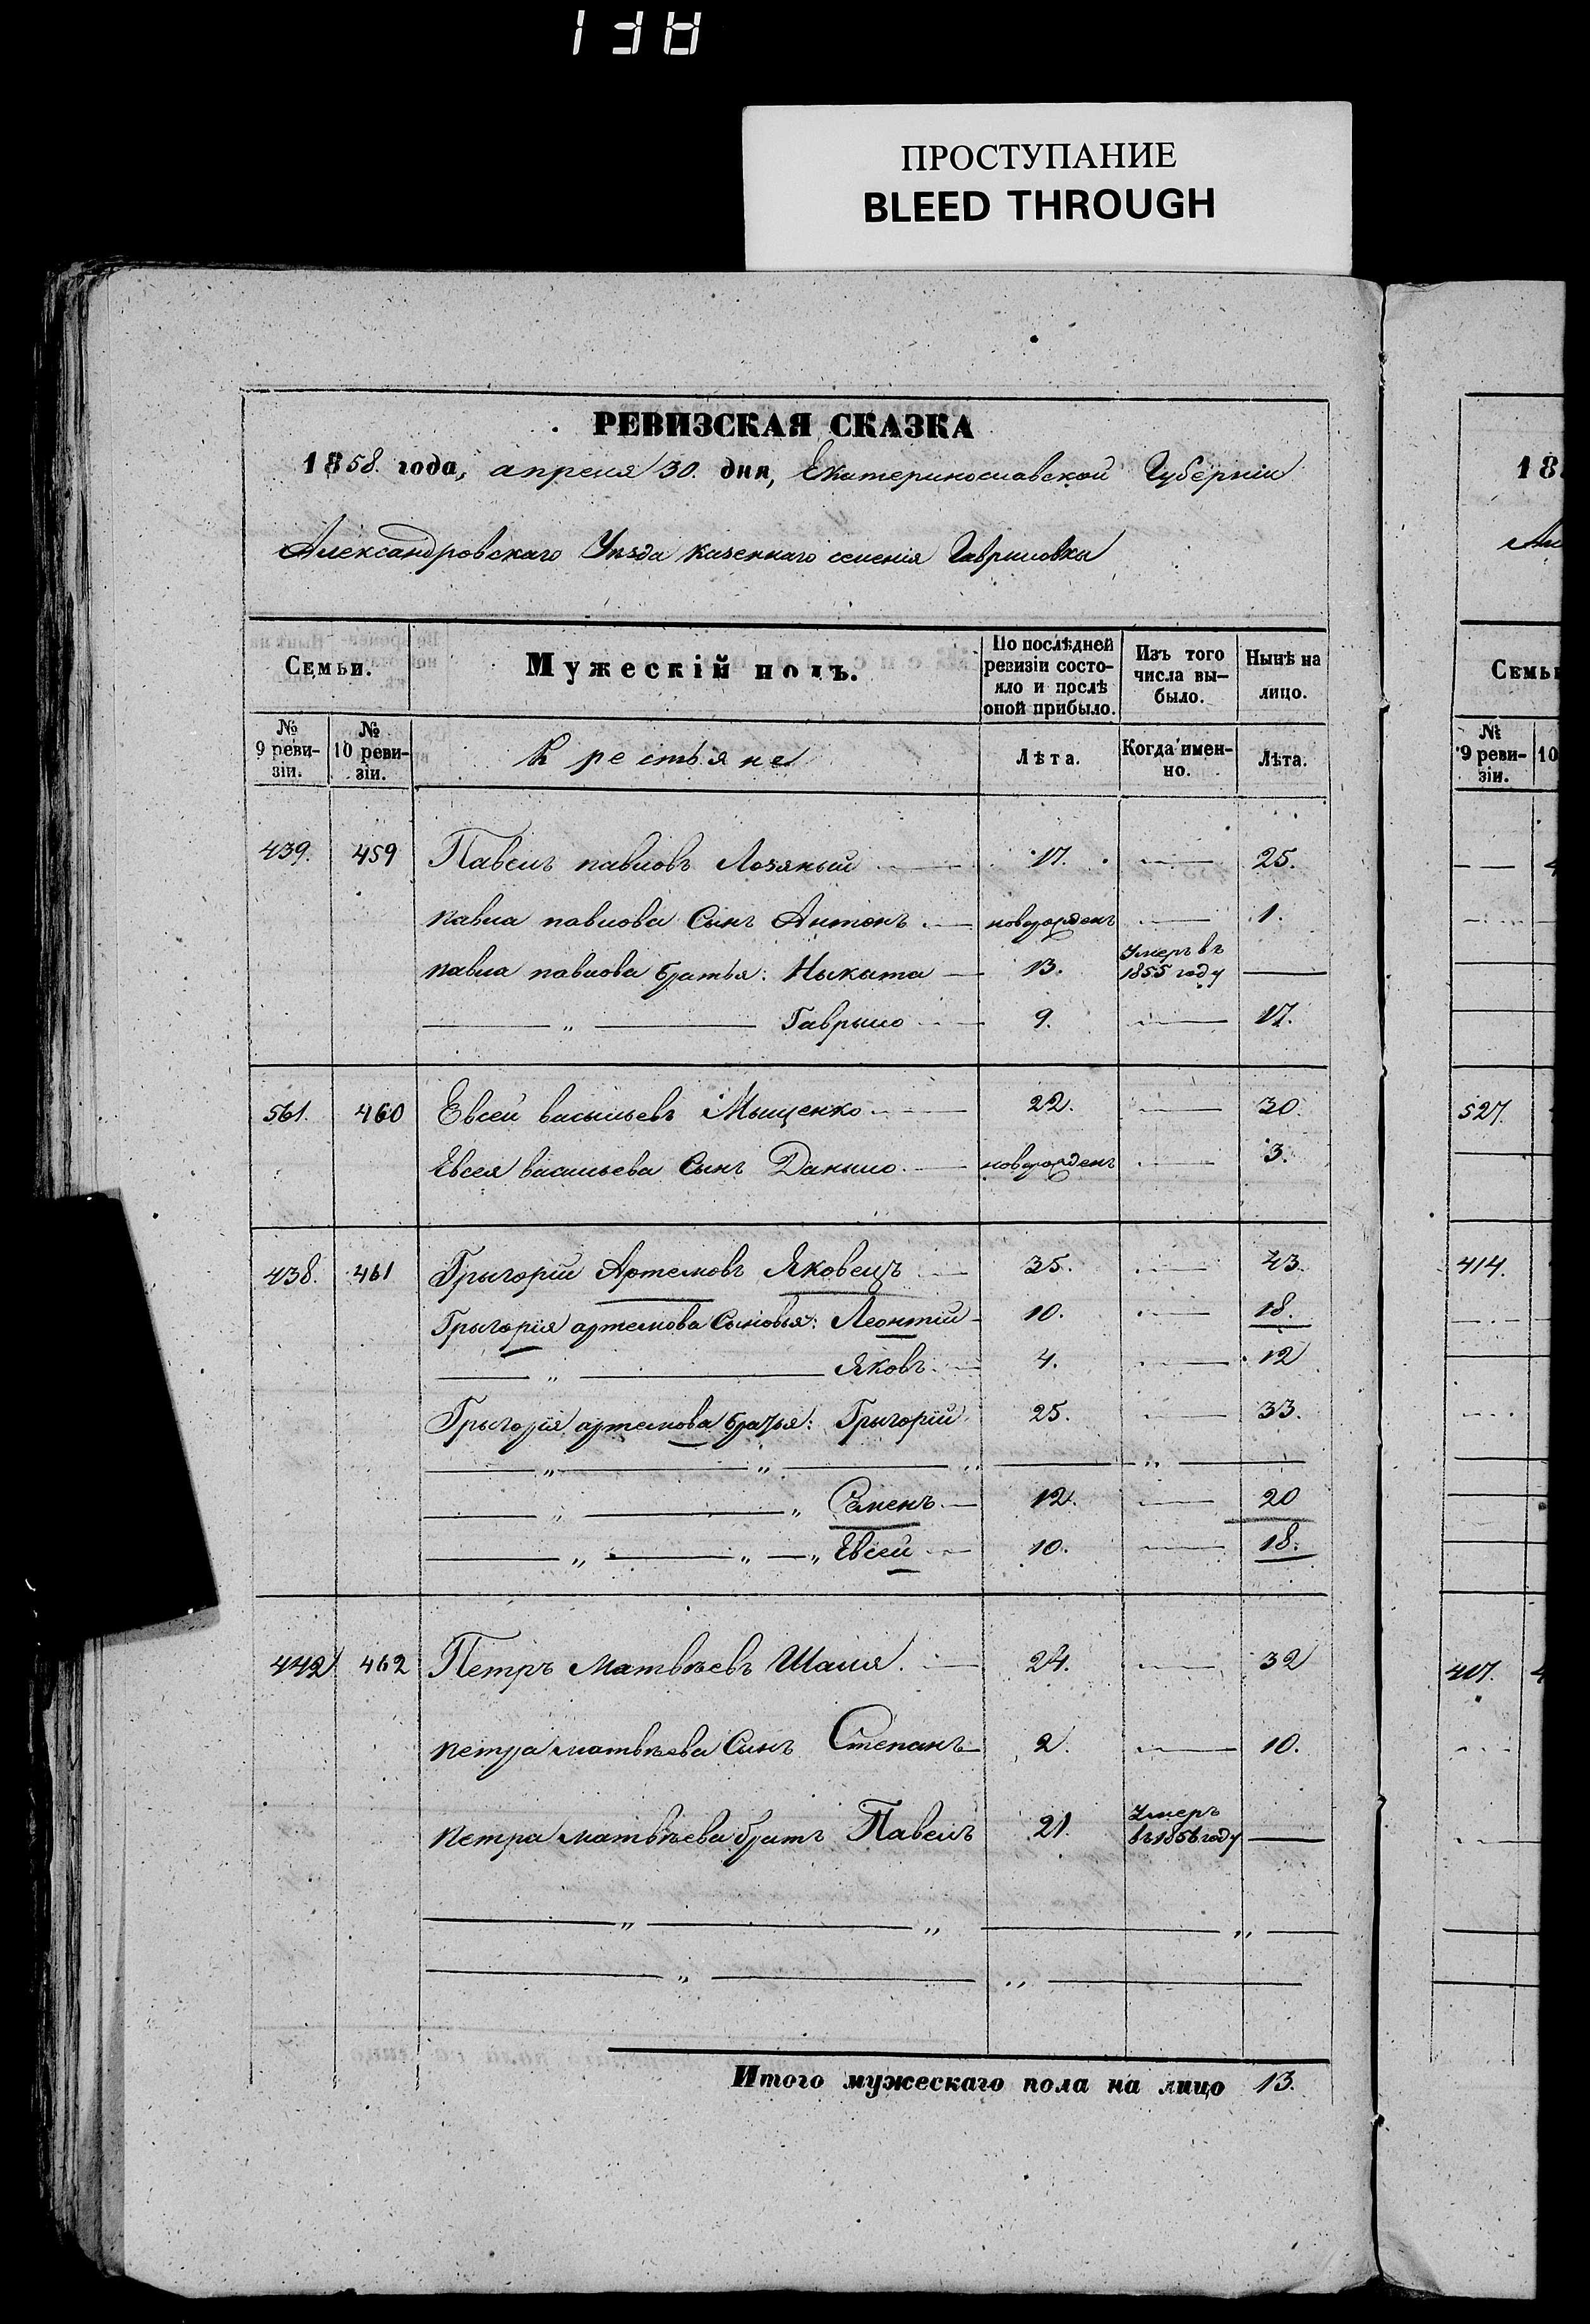 ПРОСТУПАНИЕ
BLEED THROUGH
РЕВИЗСКАЯ СКАЗКА
1858. года, апреля 30. дня, Екатеринославской Губерніи
Александровскаго Уѣзда казеннаго селенія Гавриловки
Семьи. Мужескій полъ. По послѣдней ревизіи состояло и послѣ оной прибыло. Изъ того числа выбыло. Нынѣ на лицо.
№ 9 ревизіи. № 10 ревизіи. Крестьяне Лѣта. Когда именно. Лѣта.
439. 459 Павелъ павловъ Лозяный 17. — 25.
павла павлова Сынъ Антонъ — новорожденъ — 1.
павла павлова братья: Ныкита — 13. Умеръ въ 1855 году —
— „ — Гаврыло — 9. — 17.
561. 460 Евсей васыльевъ Мыщенко — 22. — 30.
Евсея васильева Сынъ Даныло — новорожденъ — 3.
438. 461 Грыгорій Артемовъ Яковецъ — 35. — 43.
Грыгорія артемова Сыновья: Леонтій — 10. — 18.
— „ — Яковъ — 4. — 12
Грыгорія артемова братья: Грыгорій 25. — 33.
— „ — „ — „ — „ —
— „ — „ Семенъ — 12. — 20
— „ — „ — „ Евсей — 10. — 18.
442 462 Петръ Матвѣевъ Шаля. — 24. — 32
петра матвѣева Сынъ Степанъ — 2. — 10.
петра матвѣева братъ Павелъ 21. Умеръ въ 1856 году —
— „ — „ — „ —
— „ — „ —
Итого мужескаго пола на лицо 13.
18
Семьи
№ 9 ревизіи. 10
527.
414.
407.